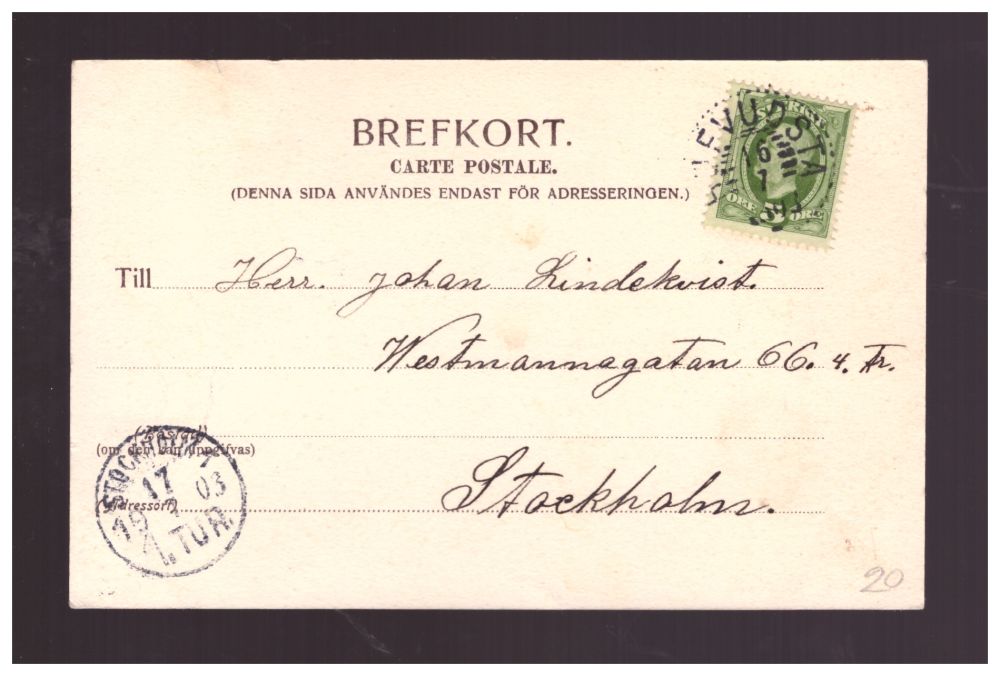 BREFKORT.
CARTE POSTALE.
(DENNA SIDA ANVÄNDES ENDAST FÖR ADRESSERINGEN.)
SVERIGE
ÖRE 5 ÖRE
16
1
Till Herr. Johan Lindekvist.
Westmannagatan 66. 4. Tr.
(Bostad)
(om den kan uppgifvas)
Stockholm.
(Adressort)
STOCKHOLM 1
17 03
10 1
1. TUR.
20